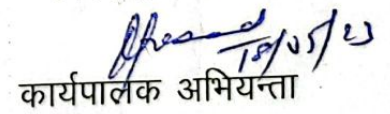 18/05/23
कार्यपालक अभियन्ता